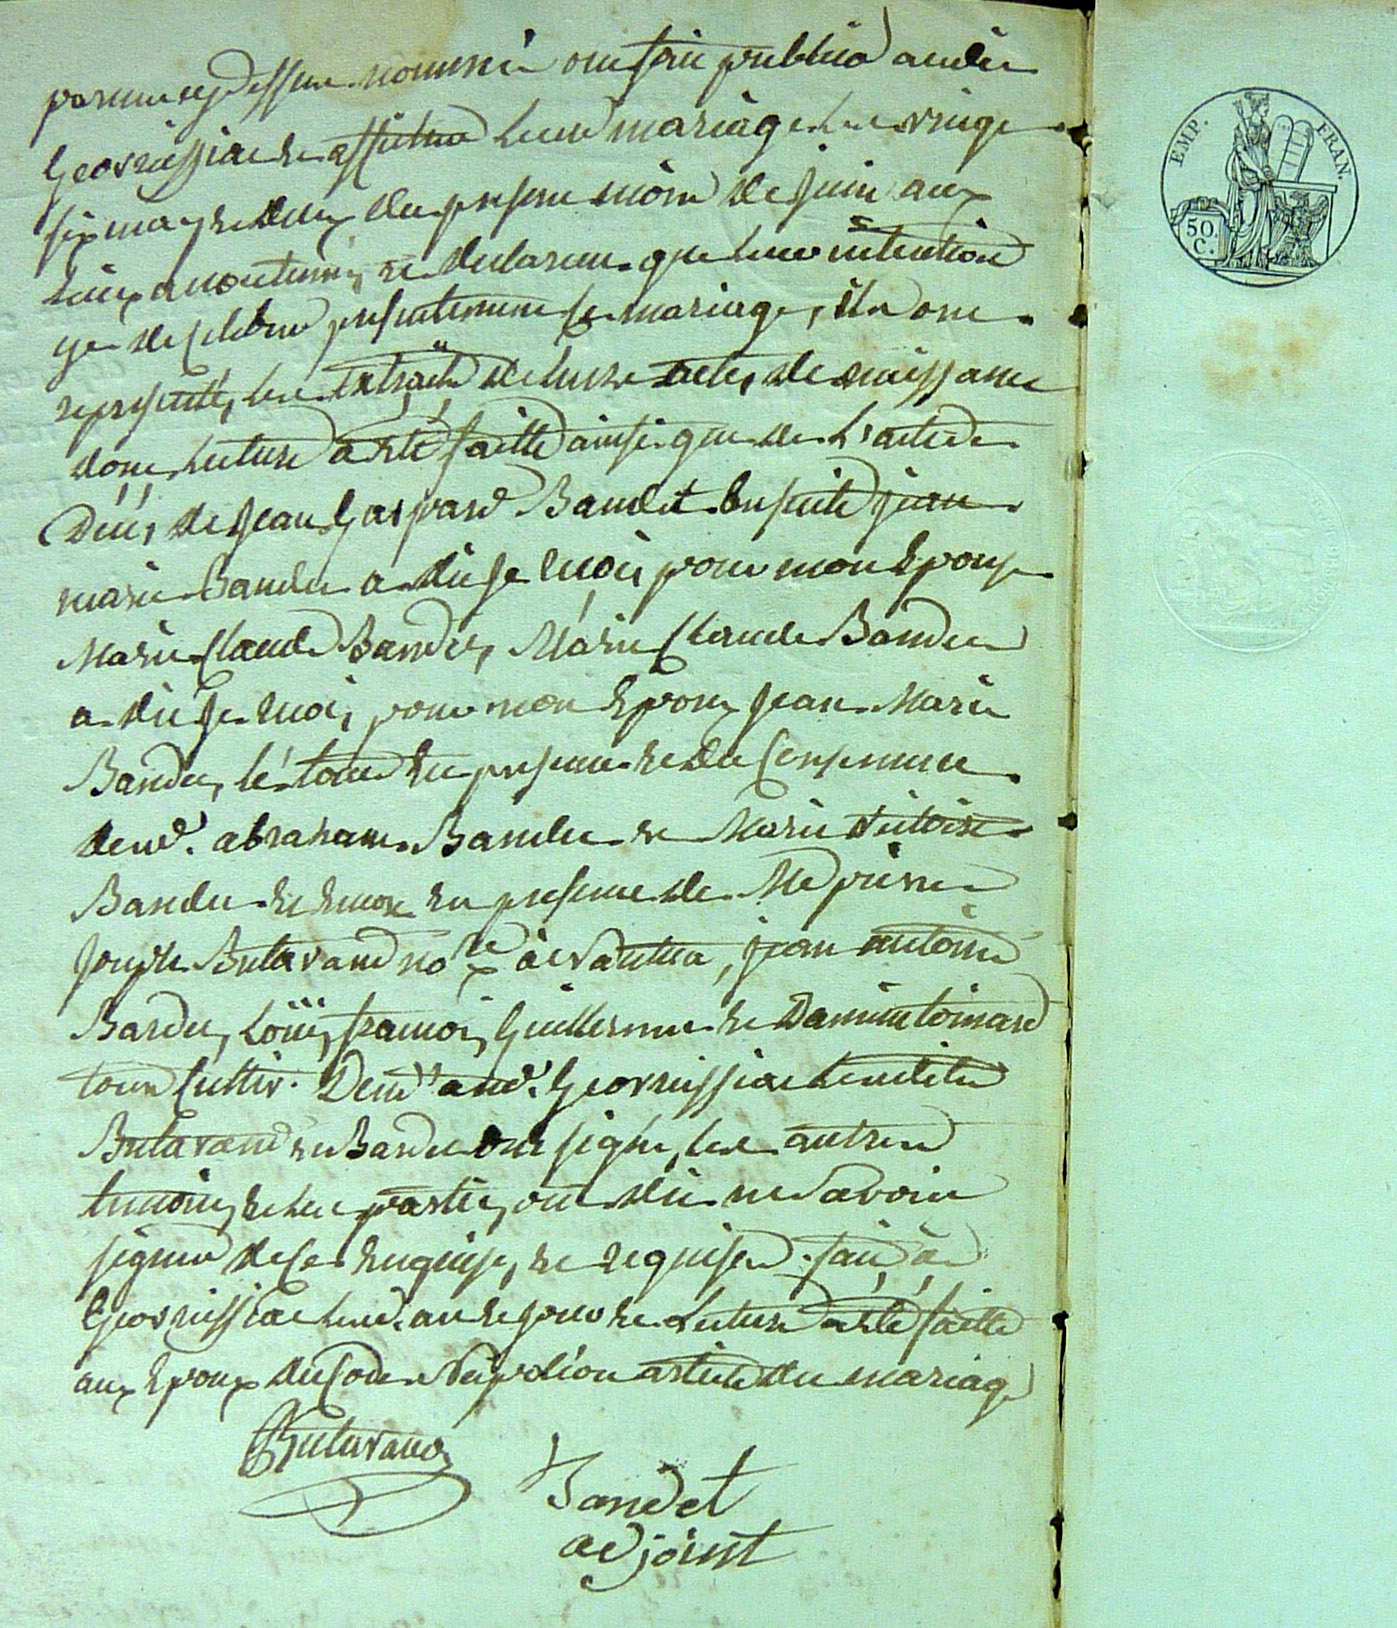 nommé ont fait publier audit
Georvissiac et afficher leur mariage les vingt
six may et deux du present mois de juin aux
lieux accoutumés et declarent que leur intention
de celebrer presentement ce mariage, ils ont
representé, les extraits de leurs actes de naissance
dont lecture a été faitte ainsi que de l'acte de
Décès de Jean Gaspard Bandet Ensuite jean
marie Bandet a dit je moi, pour mon Epouse
Marie Claude Bandet, Marie Claude Bandet
a dit je moi, pour mon Epoux Jean Marie
Bandet, le tout en presence et du Consentement
abraham Bandet et Marie Victoire
Bandet et encore en presence de Me pierre
Joseph Butavand nore à Nantua, jean antoine
Bardet, Loüis françois Guillermet et
tous Cultiv. Demts aud. Georvissiac
Butavand et Bardet ont signé, les autres
temoins et les parties ont dit ne Savoir
signer de ce Enquis, et requises. fait à
Georvissiac et jour et Lecture a été faitte
aux Epoux du Code Napoléon article du mariage
Butavand
Bandet
adjoint
EMP. FRAN.
50.
C.